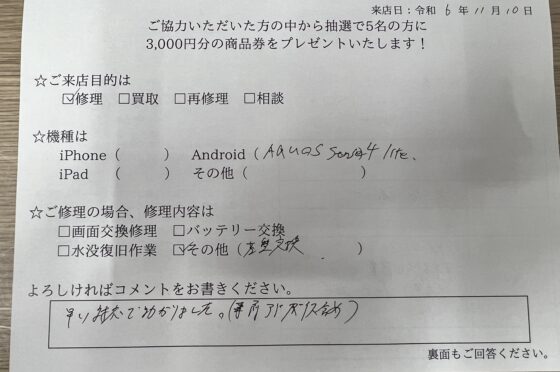 来店日：令和 6 年 11 月 10 日
ご協力いただいた方の中から抽選で5名の方に
3,000円分の商品券をプレゼントいたします！
☆ご来店目的は
☑修理 □買取 □再修理 □相談
☆機種は
iPhone（ ） Android（AQUOS Sense4 lite.
iPad （ ） その他（ ）
☆ご修理の場合、修理内容は
□画面交換修理 □バッテリー交換
□水没復旧作業 ☑その他（交換 ）
よろしければコメントをお書きください。
早い対応で助かりました。（アドバイス含め）
裏面もご回答ください。